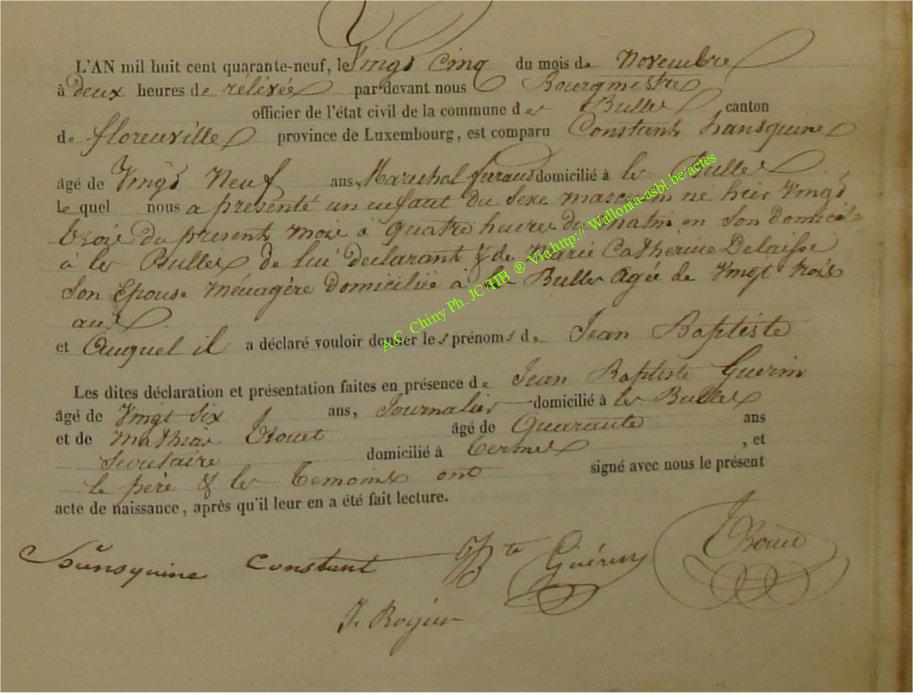 L'AN mil huit cent quarante-neuf, le Vingt Cinq du mois de Novembre
à deux heures de rélévée par devant nous Bourgmestre
officier de l'état civil de la commune des Bulles canton
de florenville province de Luxembourg, est comparu Constant hansquine
âgé de Vingt Neuf ans, Maréchal feraud domicilié à les Bulles
le quel nous a présenté un enfant du sexe masculin né hier Vingt
trois du présent mois à quatre heures du matin en son domicile
à les Bulles de lui déclarant & de Marie Catherine Delaisse
Son Epouse Ménagère domiciliée à les Bulles Agée de Vingt trois
ans
et Auquel il a déclaré vouloir donner les prénoms de Jean Baptiste
Les dites déclaration et présentation faites en présence de Jean Baptiste Guerin
âgé de Vingt Six ans, Journalier domicilié à les Bulles
et de Mathias âgé de Quarante ans
Secretaire domicilié à termes , et
le père & les temoins ont signé avec nous le présent
acte de naissance, après qu'il leur en a été fait lecture.
hansquine Constant JBte Guérin
J. Rogier
A.G. Chiny Ph. JC HB ® Vis http:// Wallonia-asbl.be/actes